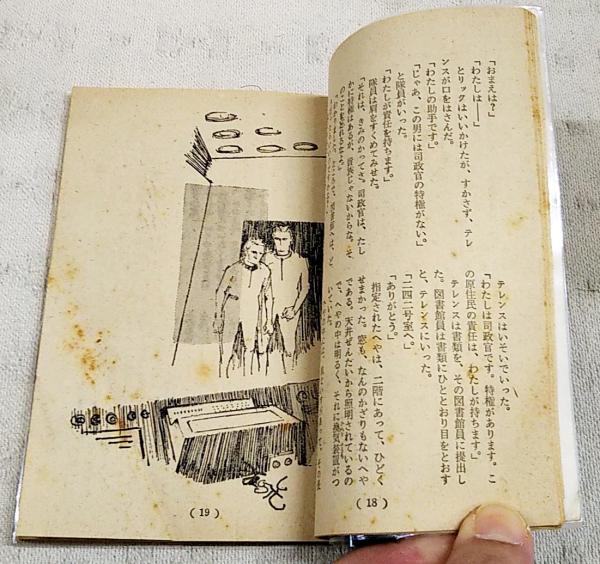 「おまえは?」
「わたしは——」
とリックはいいかけたが、すかさず、テレ
ンスが口をはさんだ。
「わたしの助手です。」
「じゃあ、この男には司政官の特権がない。」
と隊員がいった。
「わたしが責任を持ちます。」
隊員は肩をすくめてみせた。
「それは、きみのかってさ。司政官は、たし
かに特権はあるが、貴族じゃないからな。そ
テレンスはいそいでいった。
「わたしは司政官です。特権があります。こ
の原住民の責任は、わたしが持ちます。」
テレンスは書類を、その図書館員に提出し
た。図書館員は書類にひととおり目をとおす
と、テレンスにいった。
「二四二号室へ。」
「ありがとう。」
指定されたへやは、二階にあって、ひどく
せまかった。窓も、なんのかざりもないへや
である。天井ぜんたいから照明されているの
で、へやの中は明るく、それに換気装置がつ
いていた。
(18)
(19)